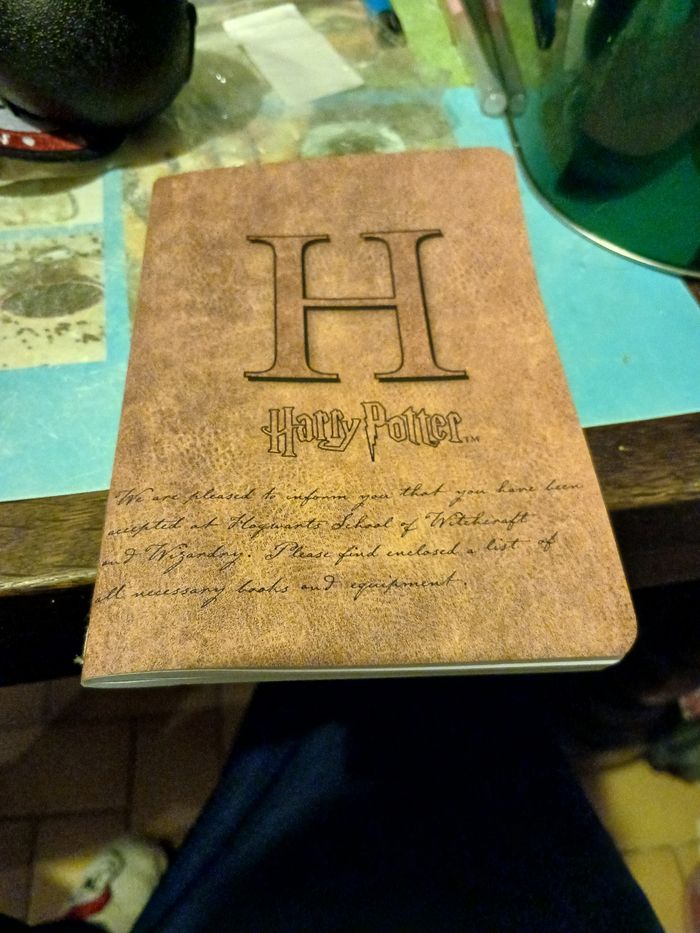 H
Harry Potter™
We are pleased to inform you that you have been
accepted at Hogwarts School of Witchcraft
and Wizardry. Please find enclosed a list of
all necessary books and equipment.